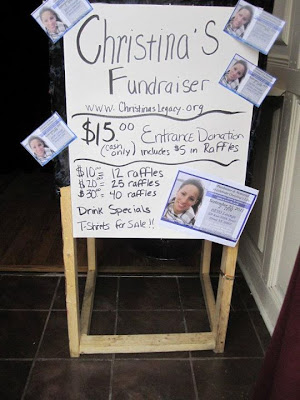 Christina's
Fundraiser
www.ChristinasLegacy.org
$15.00 Entrance Donation
(cash only) includes $5 in Raffles
$10= 12 raffles
$20= 25 raffles
$30= 40 raffles
Drink Specials
T-Shirts for Sale!!